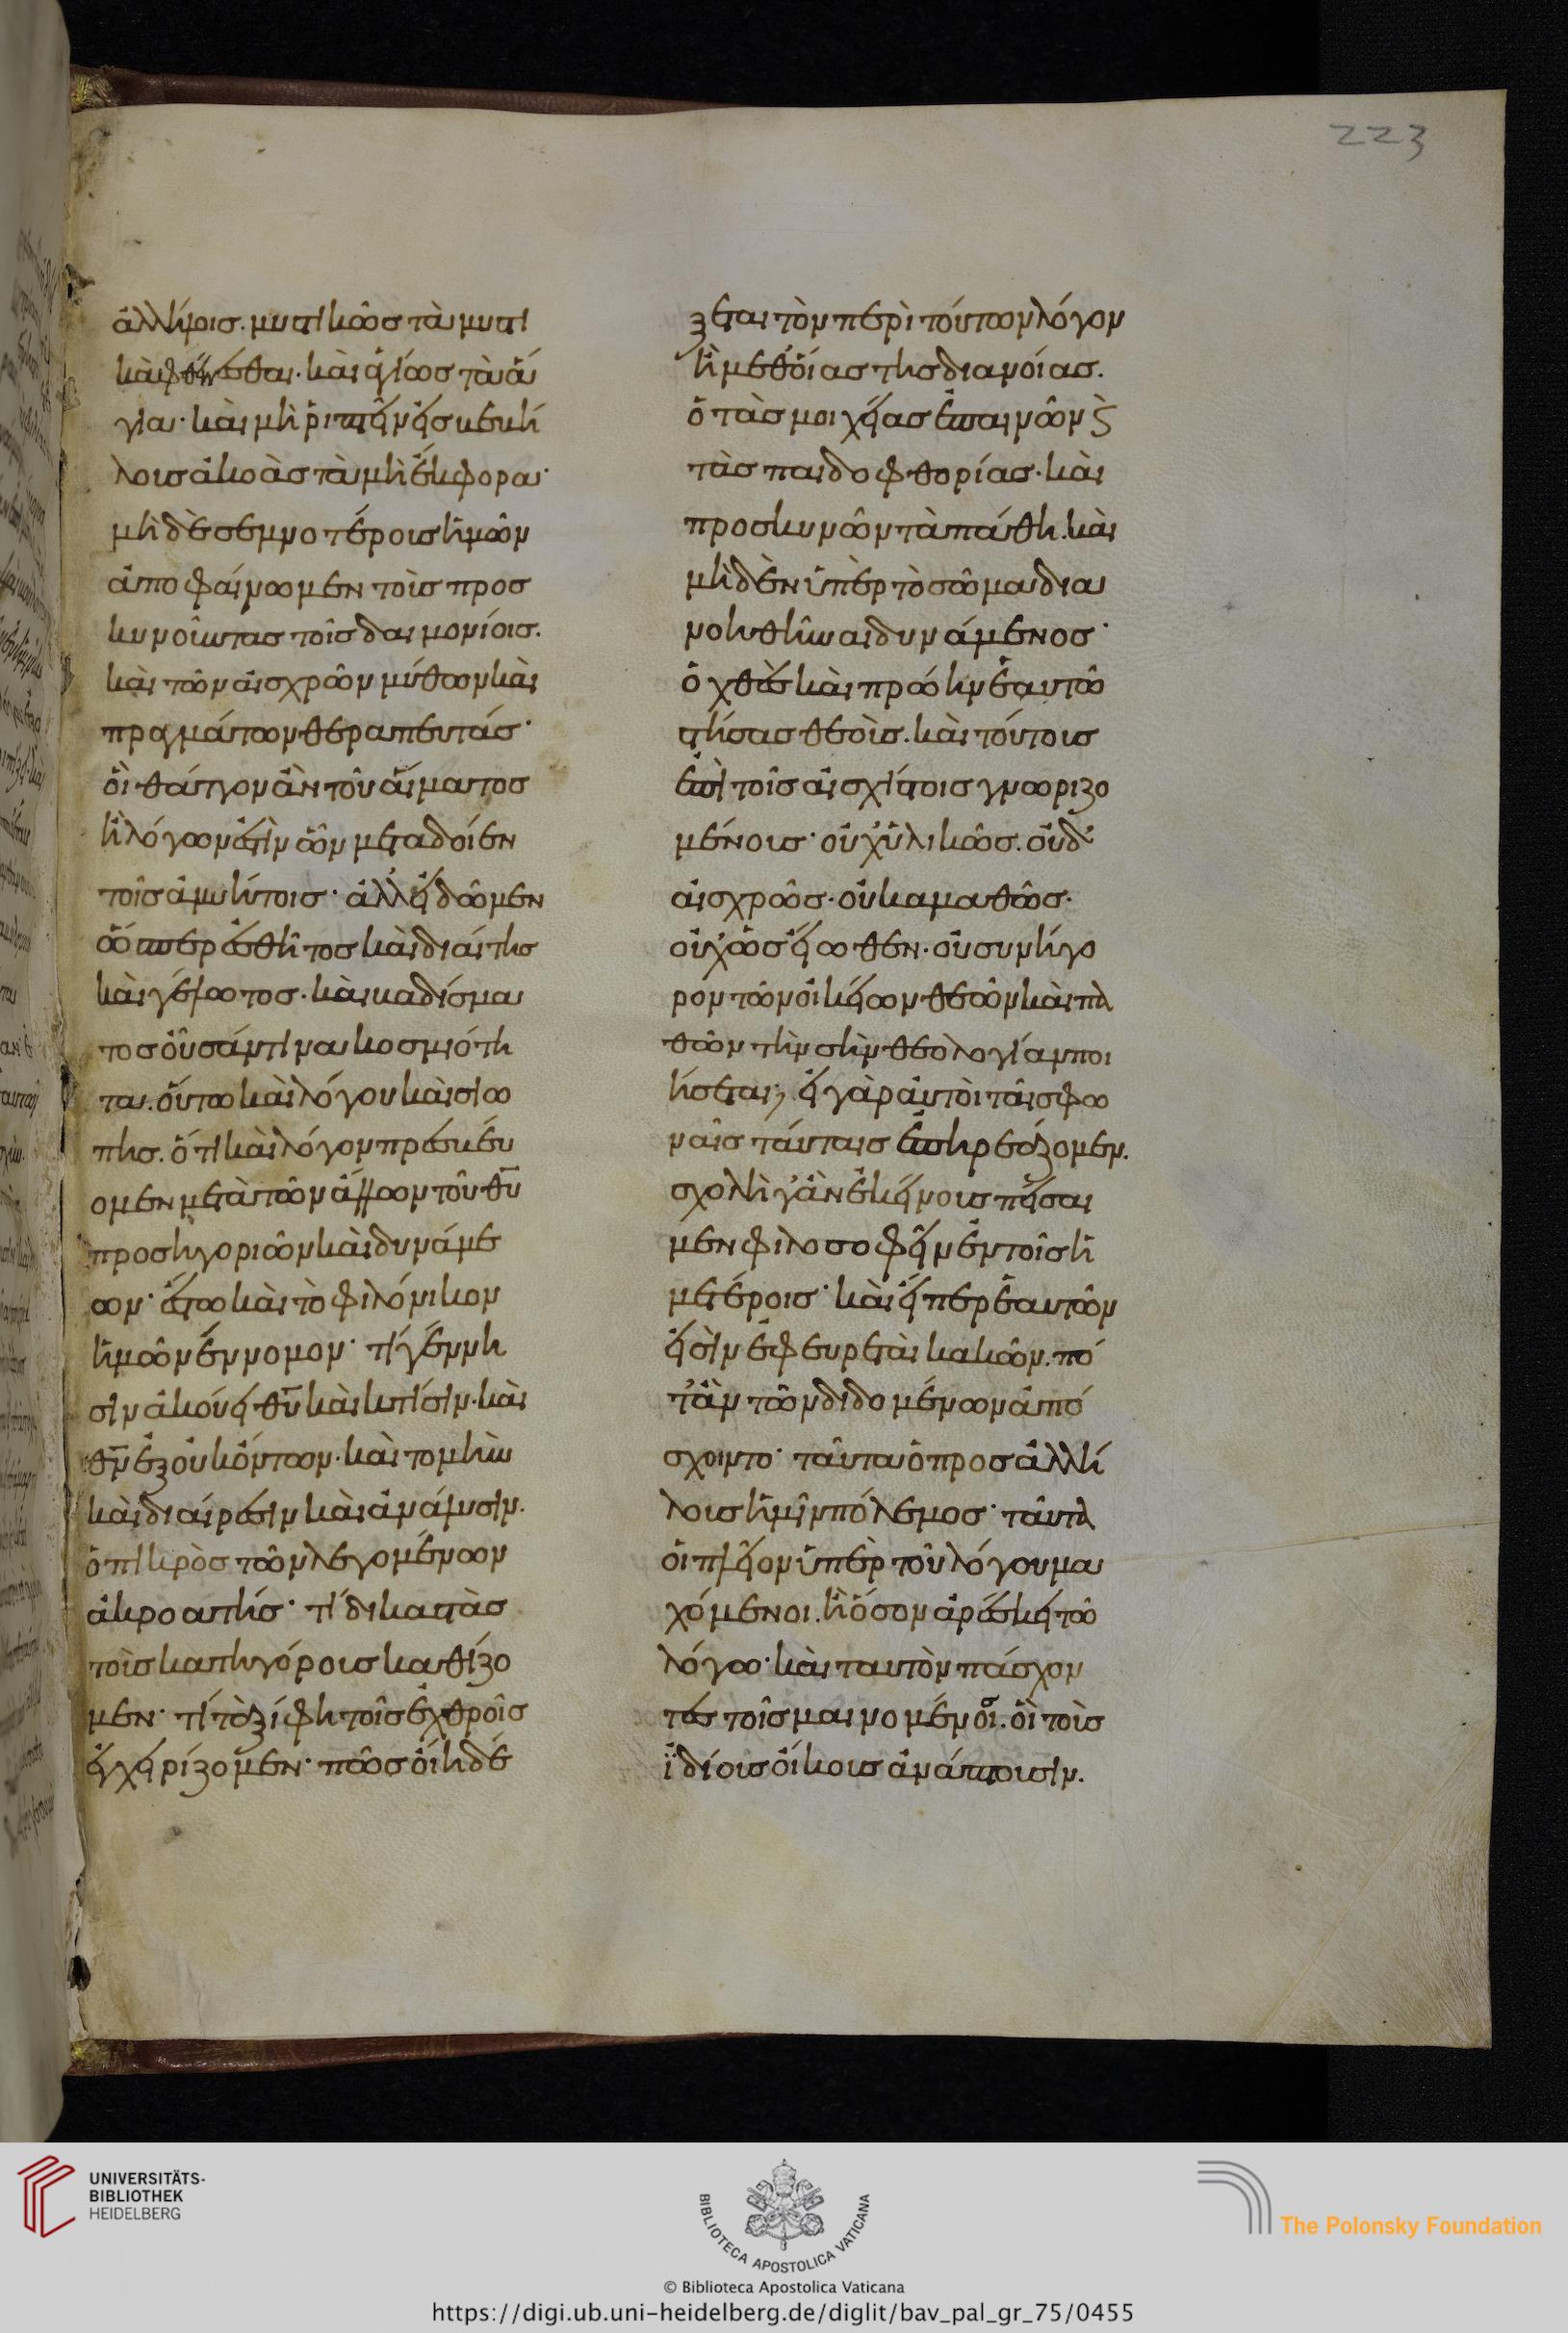 223
ἀλλήλοις. μυστικῶς τὰ μυστι
κὰ φθέγγεσθαι. καὶ ἁγίως τὰ ἅ
για. καὶ μὴ ῥιπτεῖν εἰς βεβή
λους ἀκοὰς τὰ μὴ ἔκφορα.
μὴ δὲ σεμνοτέρους ἡμῶν
ἀποφαίνωμεν τοὺς προσ
κυνοῦντας τοῖς δαιμονίοις.
καὶ τῶν αἰσχρῶν μύθων καὶ
πραγμάτων θεραπευτάς·
οἳ θάττον ἂν τοῦ αἵματος
ἢ λόγων ἐστὶν ὧν μεταδοῖεν
τοῖς ἀμυήτοις· ἀλλ' εἰδῶμεν
ὥσπερ ἐσθῆτος καὶ διαίτης
καὶ γέλωτος. καὶ βαδίσμα
τος οὖσάν τινα κοσμιότη
τα. οὕτω καὶ λόγου καὶ σιω
πῆς. ὅτι καὶ λόγον πρεσβεύ
ομεν μετὰ τῶν ἄλλων τοῦ θῦ
προσηγοριῶν καὶ δυνάμε
ων· ἔστω καὶ τὸ φιλόνικον
ἡμῶν ἔννομον· τί γέννη
σιν ἀκούει θῦ καὶ κτίσιν. καὶ
θν ἐξ οὐκ ὄντων. καὶ τομὴν
καὶ διαίρεσιν καὶ ἀνάλυσιν.
ὁ πικρὸς τῶν λεγομένων
ἀκροατής· τί δικαστὰς
τοὺς κατηγόρους καθίζο
μεν· τί τὰ ξίφη τοῖς ἐχθροῖς
ἐγχειρίζομεν· πῶς οἴει δέ
ξεται τὸν περὶ τούτων λόγον
ἢ μεθ' οἵας τῆς διανοίας.
ὁ τὰς μοιχείας ἐπαινῶν ϗ
τὰς παιδοφθορίας. καὶ
προσκυνῶν τὰ πάθη. καὶ
μηδὲν ὑπὲρ τὸ σῶμα δια
νοηθῆναι δυνάμενος·
ὁ χθὲς καὶ πρώην ἑαυτῶ
στήσας θεούς. καὶ τούτους
ἐπὶ τοῖς αἰσχίστοις γνωριζο
μένους· οὐχ' ὑλικῶς. οὐδ'
αἰσχρῶς. οὐκ ἀμαθῶς.
οὐχ' ὡς εἴωθεν. οὐ συνήγο
ρον τῶν οἰκείων θεῶν καὶ πα
θῶν τὴν σὴν θεολογίαν ποι
ήσεται; εἰ γὰρ αὐτοὶ ταῖς φω
ναῖς ταύταις ἐπηρεάζομεν.
σχολῆ γ' ἂν ἐκείνους πείσαι
μεν φιλοσοφεῖν ἐν τοῖς ἡ
μετέροις· καὶ εἴπερ ἑαυτῶν
εἰσὶν ἐφευρεταὶ κακῶν. πό
τ' ἂν τῶν διδομένων ἀπό
σχοιντο· ταῦτα ὁ πρὸς ἀλλή
λους ἡμῖν πόλεμος· ταῦτα
οἱ πλεῖον ὑπὲρ τοῦ λόγου μα
χόμενοι. ἢ ὅσον ἀρέσκει τῶ
λόγω. καὶ ταυτὸν πάσχον
τες τοῖς μαινομένοι. οἳ τοὺς
ἰδίους οἴκους ἀνάπτουσιν.
UNIVERSITÄTS-
BIBLIOTHEK
HEIDELBERG
BIBLIOTECA APOSTOLICA VATICANA
© Biblioteca Apostolica Vaticana
The Polonsky Foundation
https://digi.ub.uni-heidelberg.de/diglit/bav_pal_gr_75/0455